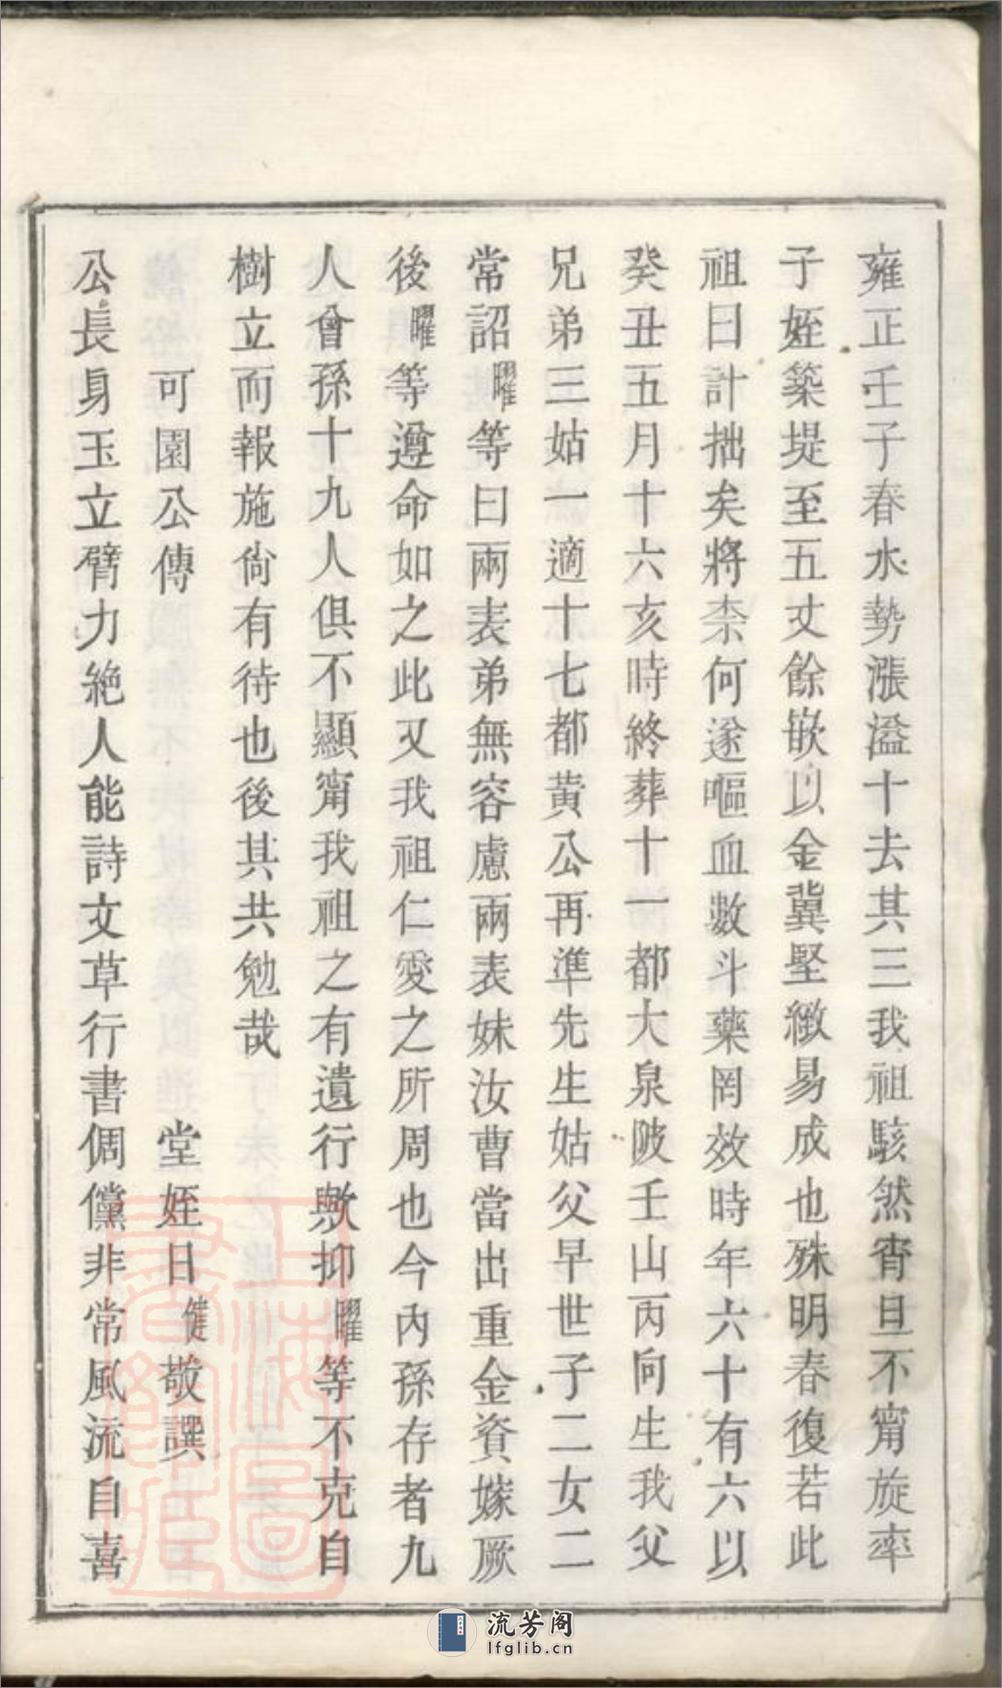 雍正壬子春水勢漲溢十去其三我祖駭然宵旦不甯旋率
子姪築堤至五丈餘嵌以金冀堅緻易成也殊明春復若此
祖曰計拙矣將柰何遂嘔血數斗藥罔效時年六十有六以
癸丑五月十六亥時終葬十一都大泉陂壬山丙向生我父
兄弟三姑一適十七都黃公再準先生姑父早世子二女二
常詔曜等曰兩表弟無容慮兩表妹汝曹當出重金資嫁厥
後曜等遵命如之此又我祖仁愛之所周也今內孫存者九
人會孫十九人俱不顯甯我祖之有遺行歟抑曜等不克自
樹立而報施尙有待也後其共勉哉
可園公傳 堂姪日㒓敬譔
公長身玉立臂力絶人能詩文草行書倜儻非常風流自喜
上海圖書館藏
流芳阁
lfglib.cn